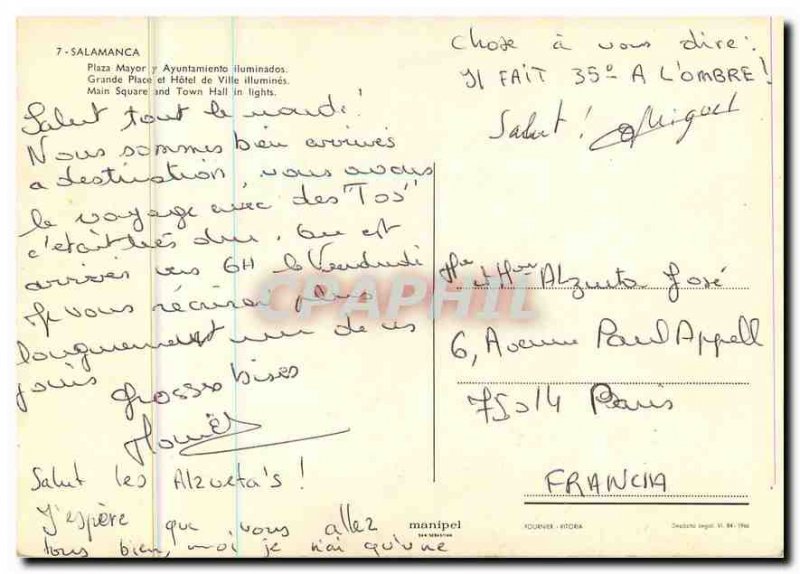 7 - SALAMANCA
Plaza Mayor y Ayuntamiento iluminados.
Grande Place et Hôtel de Ville illuminés.
Main Square and Town Hall in lights.
Salut tout le monde!
Nous sommes bien arrivés
a destination, vous avous
le voyage avec des "Tos"
c'était très dur, on est
arrivés vers 6H le Vendredi
Je vous récrirai plus
longuement un de ces
jours
Grosses bises
Salut les Alzueta's !
J'espère que vous allez
tous bien, moi je n'ai qu'une
chose à vous dire :
IL FAIT 35° A L'OMBRE !
Salut ! Miguel
Mme et Mr Alzueta José
6, Avenue Paul Appell
75014 Paris
FRANCIA
manipel
SAN SEBASTIAN
FOURNIER - VITORIA
Depósito legal. VI. 84 - 1966
CPAPHIL